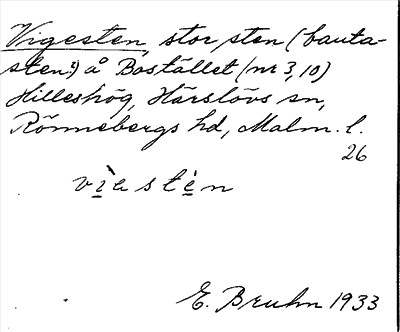 Vigesten, stor sten (bauta-
sten?) å Bostället (nr 3, 10)
Hilleshög, Härslövs sn,
Rönnebergs hd, Malm. l.
26
vìɐstèn
E. Bruhn 1933